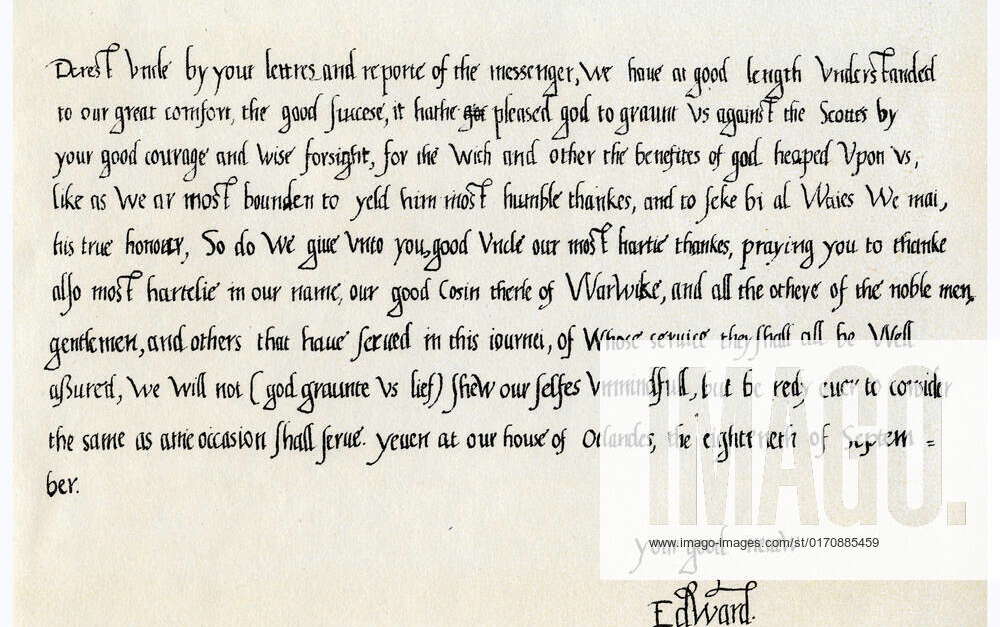 Derest Vncle by your lettres and reporte of the messenger, we haue at good length Vnderstanded
to our great comfort, the good succese, it hathe pleased god to graunt Vs against the Scottes by
your good courage and wise forsight, for the wich and other the benefites of god heaped Vpon Vs,
like as We ar most bounden to yeld him most humble thankes, and to seke bi al Waies We mai,
his true honour, So do We giue Vnto you, good Vncle our most hartie thankes, praying you to thanke
also most hartelie in our name, our good Cosin therle of Warwike, and all the othere of the noble men,
gentlemen, and others that haue serued in this iournei, of Whose seruice they shall all be Well
assured, We Will not (god graunte Vs lief) shew our selfes Vnmindfull, but be redy euer to consider
the same as anie occasion shall serue. yeuen at our house of Otlandes, the eighteneth of Septem =
ber.
your good neuew
Edward.
IMAGO.
www.imago-images.com/st/0170885459